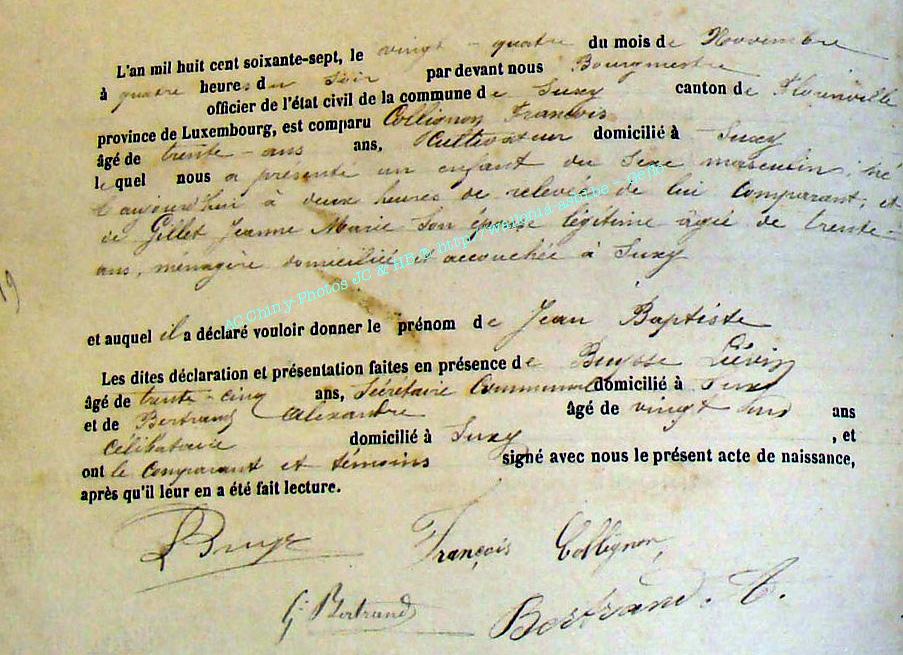 L'an mil huit cent soixante-sept, le vingt-quatre du mois de Novembre
à quatre heures du Soir par devant nous Bourgmestre
officier de l'état civil de la commune de Suxy canton de Florenville
province de Luxembourg, est comparu Collignon François
âgé de trente-ans ans, Cultivateur domicilié à Suxy
lequel nous a présenté un enfant du Sexe masculin, né
aujourd'hui à deux heures de relevée de lui Comparant, et
de Gillet Jeanne Marie Son épouse légitime âgée de trente-
ans, ménagère domiciliée et accouchée à Suxy
19
AC Chiny-Photos JC & HB @ http://wallonia-asbl.be - geno
et auquel il a déclaré vouloir donner le prénom de Jean Baptiste
Les dites déclaration et présentation faites en présence de Buysse Liévin
âgé de trente-cinq ans, Sécrétaire Communal domicilié à Suxy
et de Bertrand Alexandre âgé de vingt ans
Célibataire domicilié à Suxy , et
ont le Comparant et témoins signé avec nous le présent acte de naissance,
après qu'il leur en a été fait lecture.
François Collignon
Bertrand
Bertrand. A.